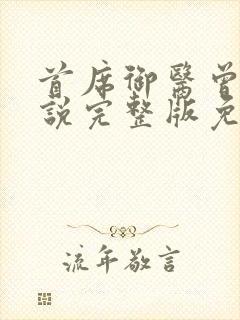 首席御醫曾
說完整版免
流年敬言